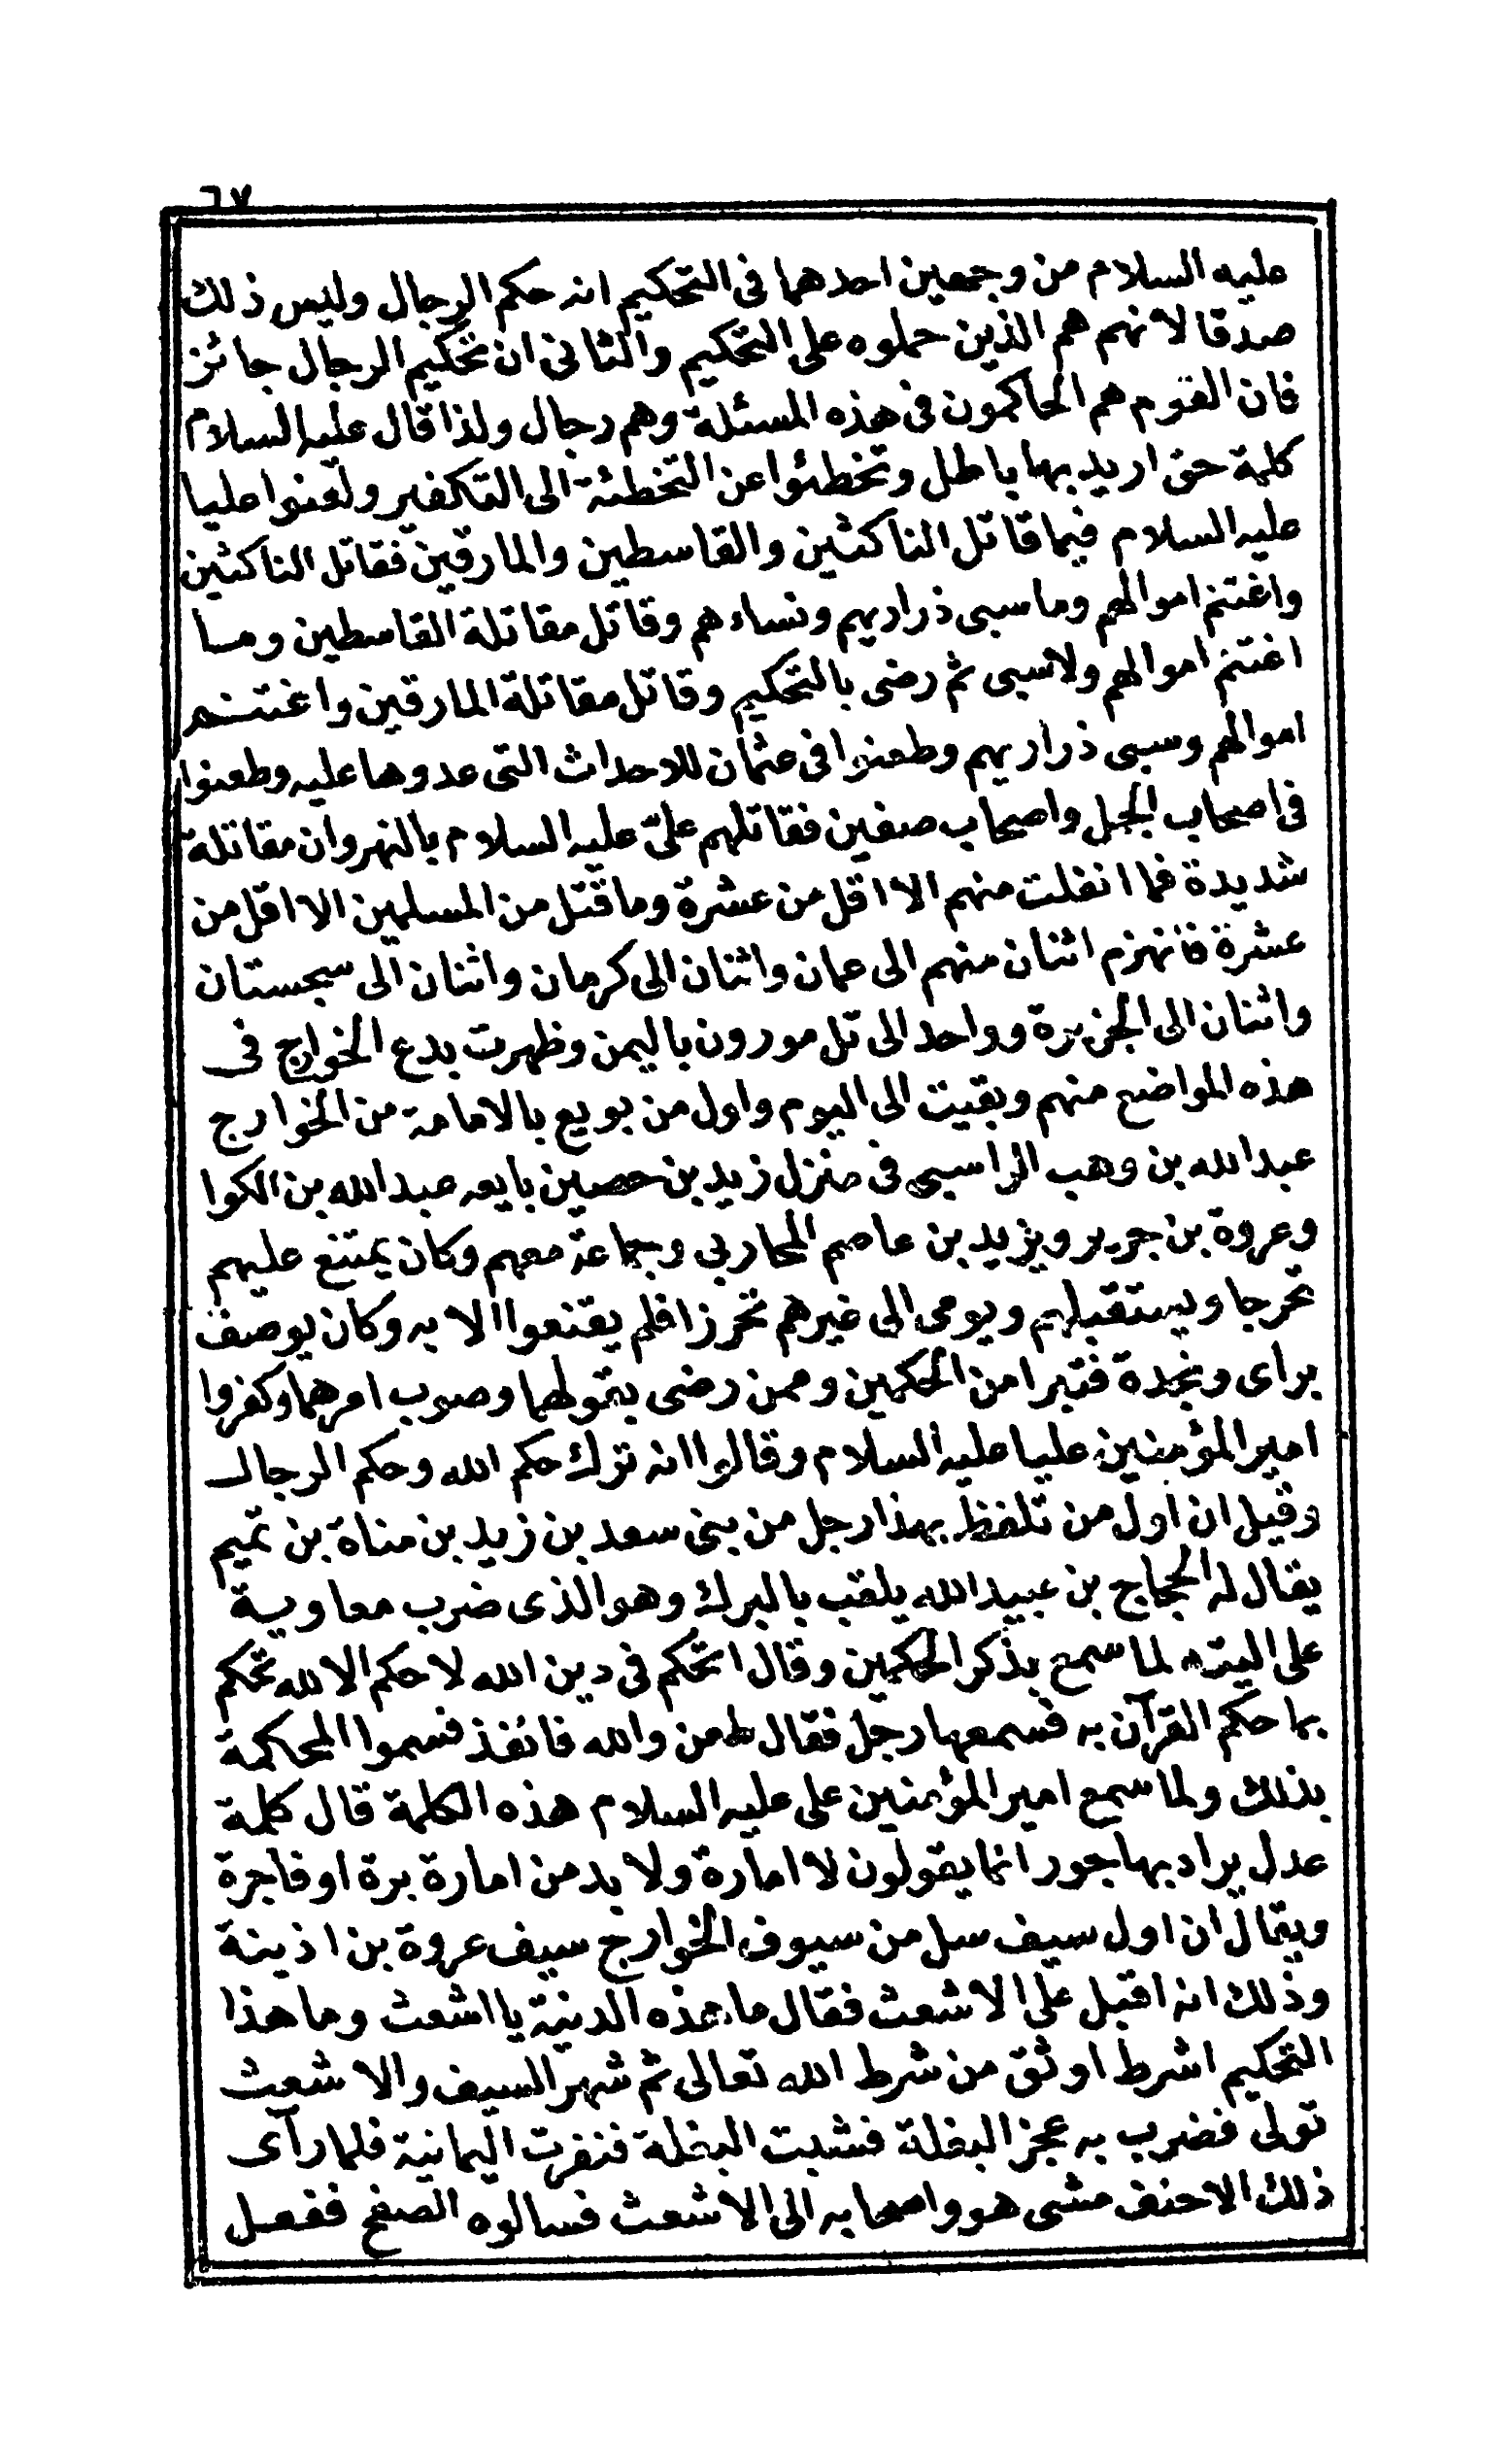 ٦٧
عليه السلام من وجهين احدهما فى التحكيم انه حكم الرجال وليس ذلك
صدقا لانهم هم الذين حملوه على التحكيم والثانى ان تحكيم الرجال جائز
فان القوم هم الحاكمون فى هذه المسئلة وهم رجال ولذا قال عليه السلام
كلمة حق اريد بها باطل وتخطئوا عن التخطئة الى التكفير ولعنوا عليا
عليه السلام فيما قاتل الناكثين والقاسطين والمارقين فقاتل الناكثين
واغتنم اموالهم وما سبى ذراريهم ونساءهم وقاتل مقاتلة القاسطين وما
اغتنم اموالهم ولا سبى ثم رضى بالتحكيم وقاتل مقاتلة المارقين واغتنم
اموالهم وسبى ذراريهم وطعنوا فى عثمان للاحداث التى عدوها عليه وطعنوا
فى اصحاب الجمل واصحاب صفين فقاتلهم علىّ عليه السلام بالنهروان مقاتلة
شديدة فما انفلت منهم الا اقل من عشرة وما قتل من المسلمين الا اقل من
عشرة فانهزم اثنان منهم الى عمان واثنان الى كرمان واثنان الى سجستان
واثنان الى الجزيرة وواحد الى تل مورون باليمن وظهرت بدع الخوارج فى
هذه المواضع منهم وبقيت الى اليوم واول من بويع بالامامة من الخوارج
عبد الله بن وهب الراسبى فى منزل زيد بن حصين بايعه عبد الله بن الكوا
وعروة بن جرير ويزيد بن عاصم المحاربى وجماعة معهم وكان يمتنع عليهم
تحرجا ويستقبلهم ويومى الى غيرهم تحرزا فلم يقنعوا الا به وكان يوصف
براى ونجدة فتبرا من الحكمين وممن رضى بقولهما وصوب امرهما وكفروا
امير المؤمنين عليا عليه السلام وقالوا انه ترك حكم الله وحكم الرجال
وقيل ان اول من تلفظ بهذا رجل من بنى سعد بن زيد بن مناة بن تميم
يقال له الحجاج بن عبيد الله يلقب بالبرك وهو الذى ضرب معاوية
على اليته لما سمع بذكر الحكمين وقال اتحكم فى دين الله لا حكم الا لله تحكم
بما حكم القرآن به فسمعها رجل فقال طعن والله فانفذ فسموا المحكمة
بذلك ولما سمع امير المؤمنين على عليه السلام هذه الكلمة قال كلمة
عدل يراد بها جور انما يقولون لا امارة ولا بد من امارة برة او فاجرة
ويقال ان اول سيف سل من سيوف الخوارج سيف عروة بن اذينة
وذلك انه اقبل على الاشعث فقال ما هذه الدنية يا اشعث وما هذا
التحكيم اشرط اوثق من شرط الله تعالى ثم شهر السيف والاشعث
تولى فضرب به عجز البغلة فشبت البغلة فنفرت اليمانية فلما رآى
ذلك الاحنف مشى هو واصحابه الى الاشعث فسالوه الصفح ففعل